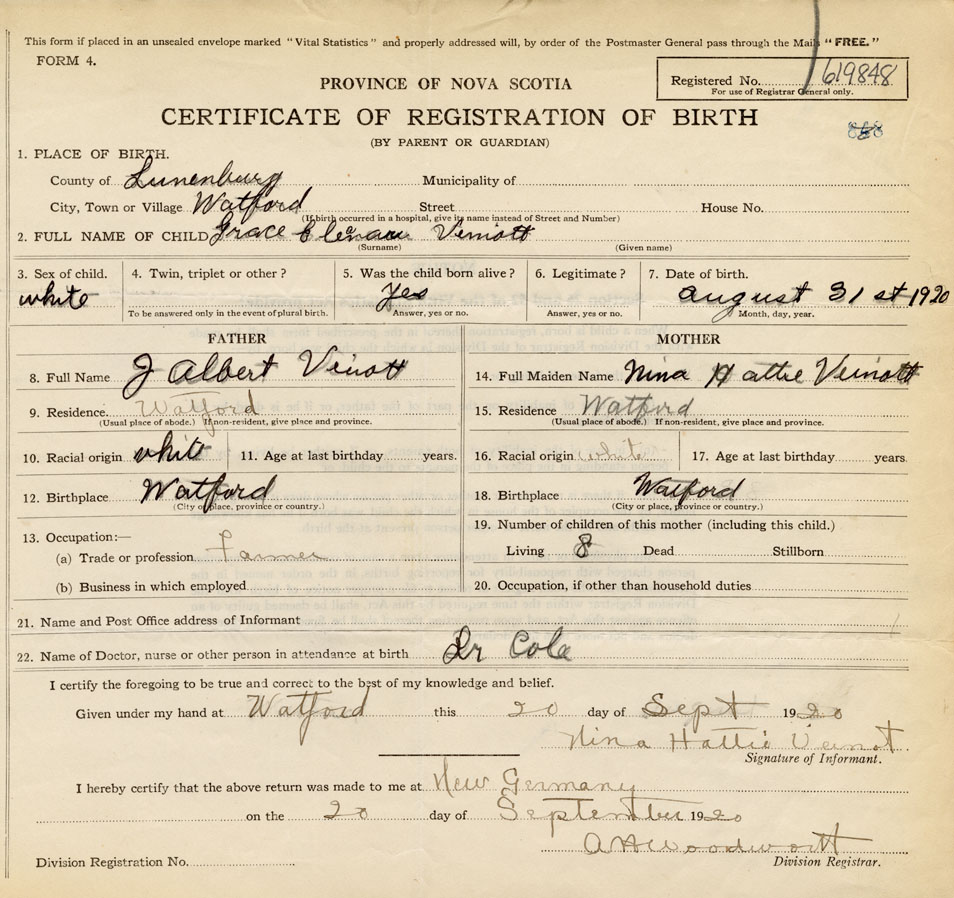 This form if placed in an unsealed envelope marked "Vital Statistics" and properly addressed will, by order of the Postmaster General pass through the Mails "FREE."
FORM 4.
Registered No. 619848
For use of Registrar General only.
PROVINCE OF NOVA SCOTIA
CERTIFICATE OF REGISTRATION OF BIRTH
(BY PARENT OR GUARDIAN)
1. PLACE OF BIRTH.
County of Lunenburg Municipality of
City, Town or Village Watford Street House No.
(If birth occurred in a hospital, give its name instead of Street and Number)
2. FULL NAME OF CHILD Grace Veniott
(Surname) (Given name)
3. Sex of child. 4. Twin, triplet or other? 5. Was the child born alive? 6. Legitimate? 7. Date of birth.
white yes august 31 st 1920
To be answered only in the event of plural birth. Answer, yes or no. Answer, yes or no. Month, day, year.
FATHER MOTHER
8. Full Name J Albert Veinott 14. Full Maiden Name Nina Hattie Veinott
9. Residence. Watford 15. Residence Watford
(Usual place of abode.) If non-resident, give place and province. (Usual place of abode.) If non-resident, give place and province.
10. Racial origin white 11. Age at last birthday years. 16. Racial origin white 17. Age at last birthday years.
12. Birthplace Watford 18. Birthplace Watford
(City or place, province or country.) (City or place, province or country.)
13. Occupation:— 19. Number of children of this mother (including this child.)
(a) Trade or profession Farmer Living 8 Dead Stillborn
(b) Business in which employed 20. Occupation, if other than household duties
21. Name and Post Office address of Informant
22. Name of Doctor, nurse or other person in attendance at birth Dr Cole
I certify the foregoing to be true and correct to the best of my knowledge and belief.
Given under my hand at Watford this 20 day of Sept 1920
Nina Hattie Veinot
Signature of Informant.
I hereby certify that the above return was made to me at New Germany
on the 20 day of September 1920
Woodworth
Division Registration No. Division Registrar.